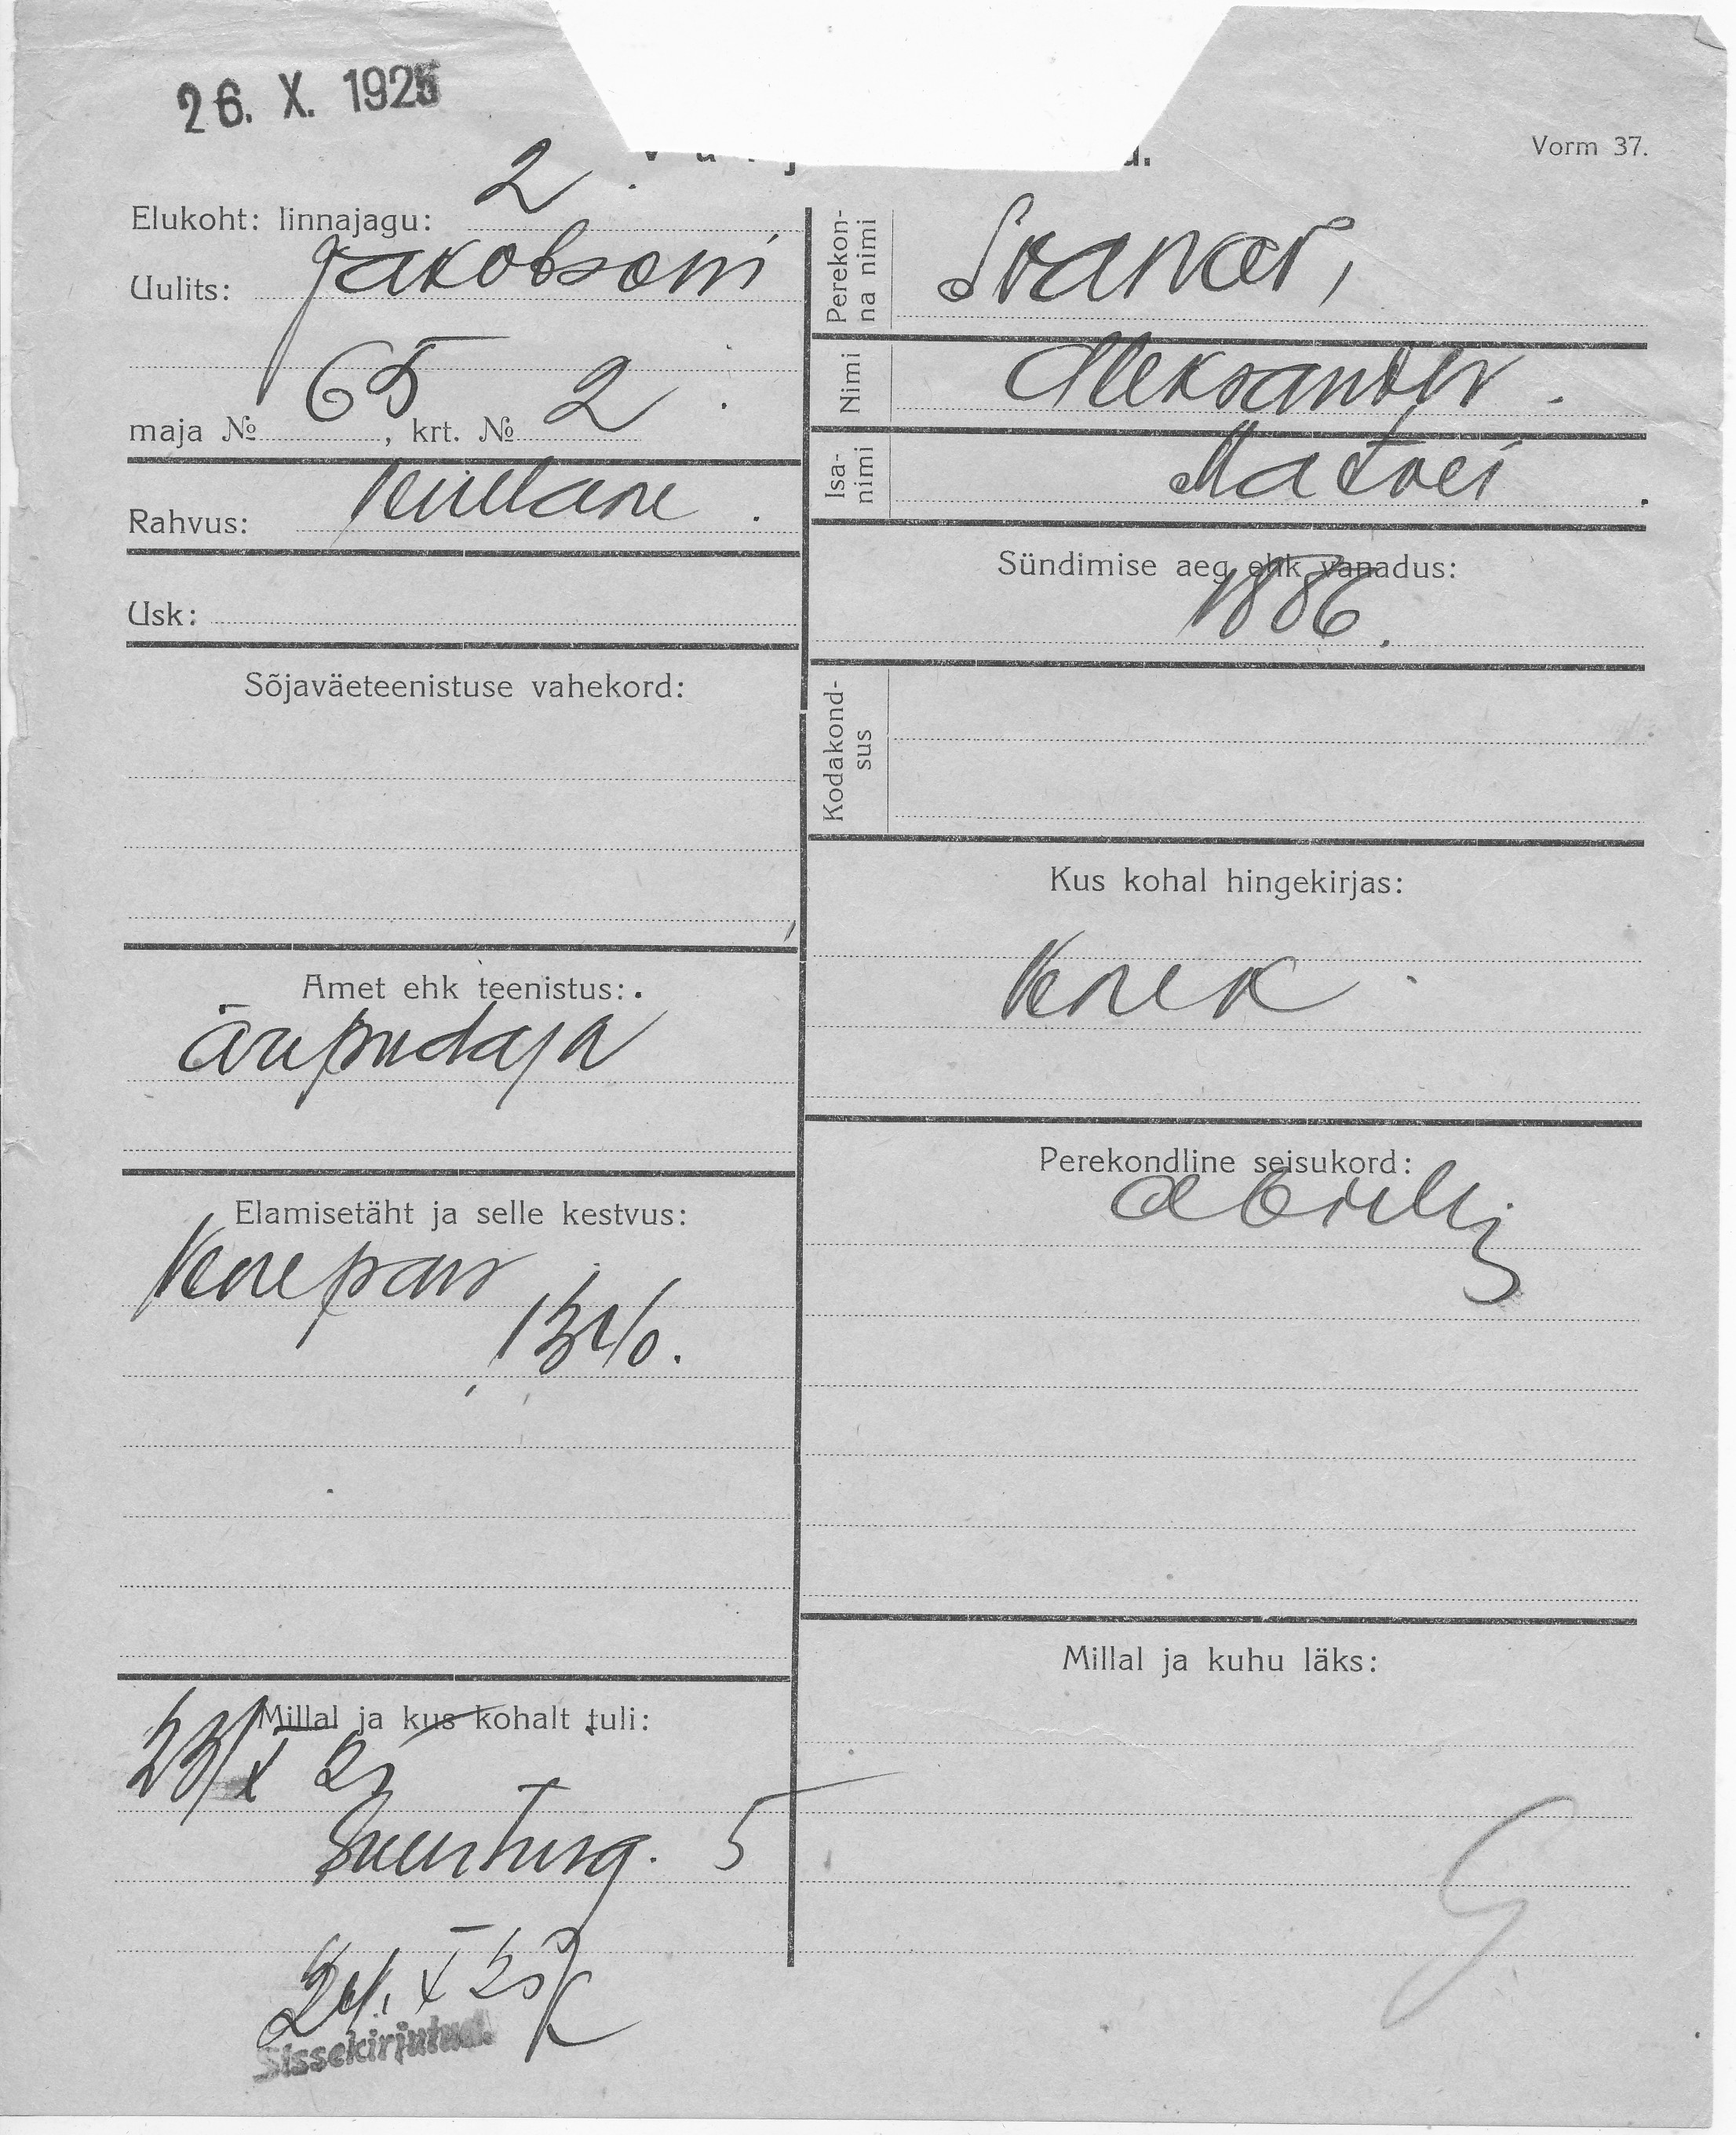 26. X. 1925
Vorm 37.
Elukoht: linnajagu: 2
Uulits: Jakobsoni
maja № 65, krt. № 2.
Rahvus:
Usk:
Sõjaväeteenistuse vahekord:
Amet ehk teenistus:
äripidaja
Elamisetäht ja selle kestvus:
Vene pass
Millal ja kus kohalt tuli:
23/X 25
Suurturg. 5
24. X 25
Sissekirjutud.
Perekon-
na nimi
Nimi
Aleksander.
Isa-
nimi
Matvei.
Sündimise aeg ehk vanadus:
1886.
Kodakond-
sus
Kus kohal hingekirjas:
Perekondline seisukord:
abielus
Millal ja kuhu läks: